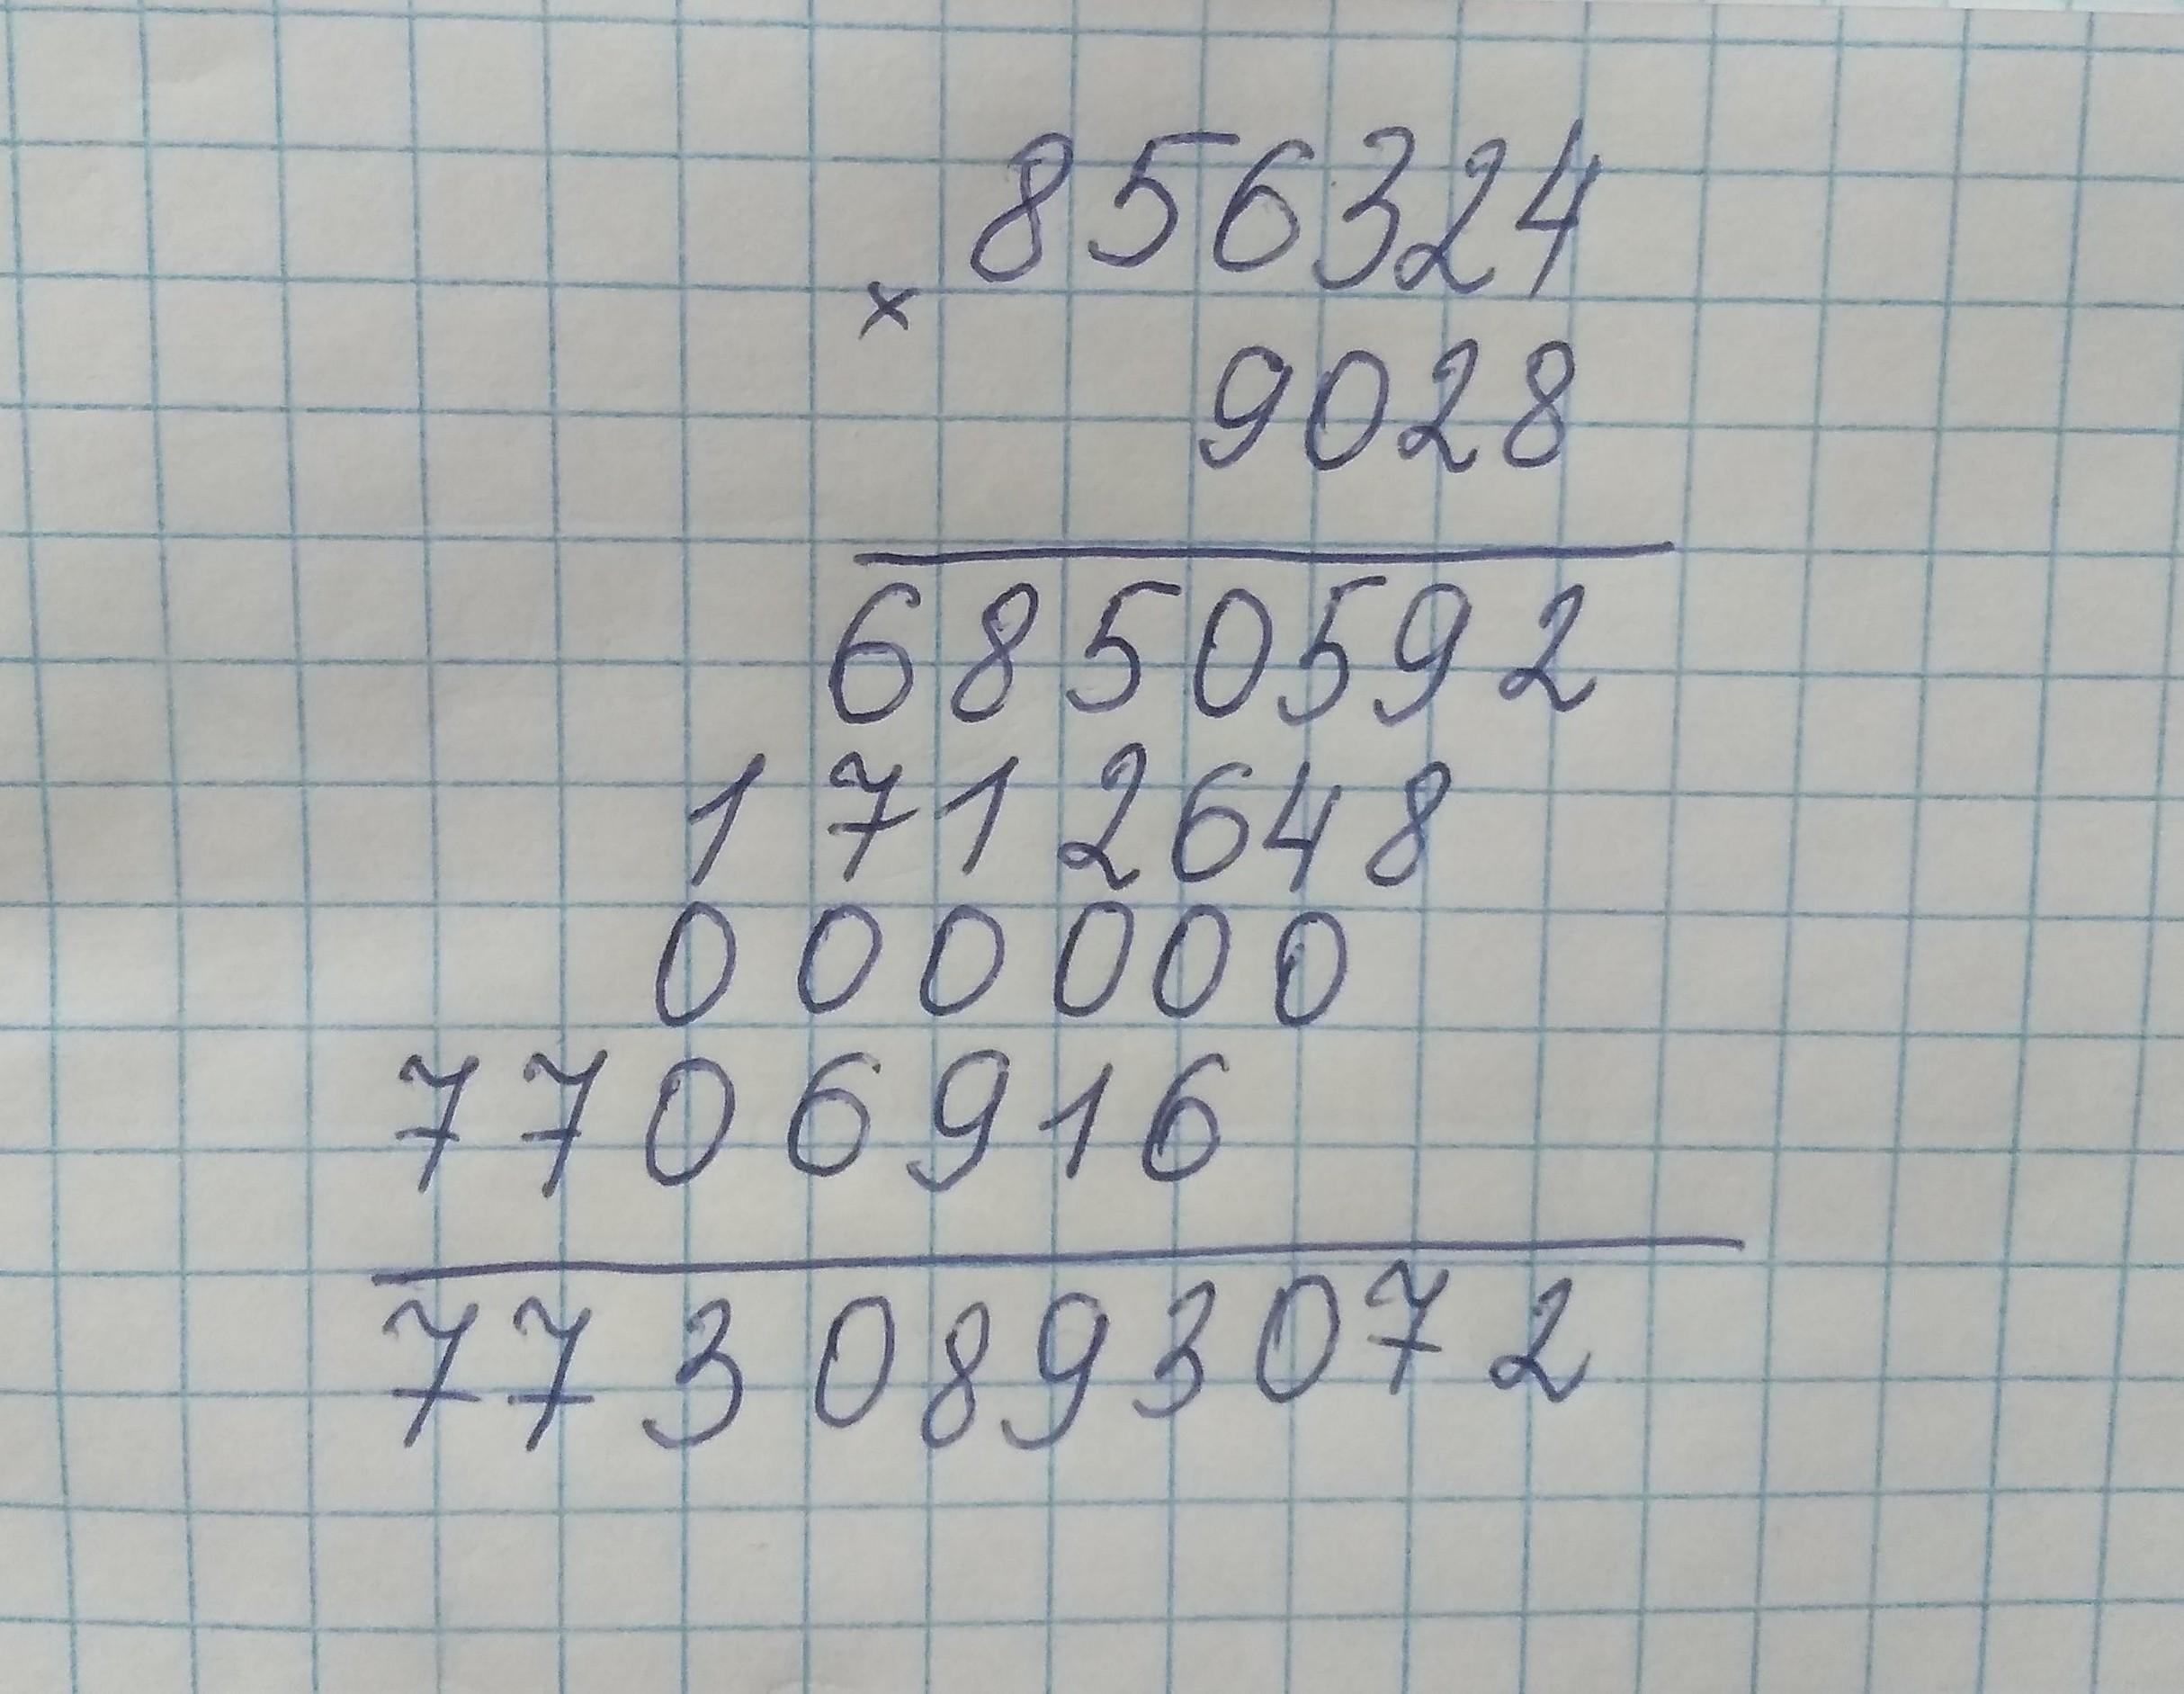 856324
×
9028
6850592
1712648
000000
7706916
7730893072